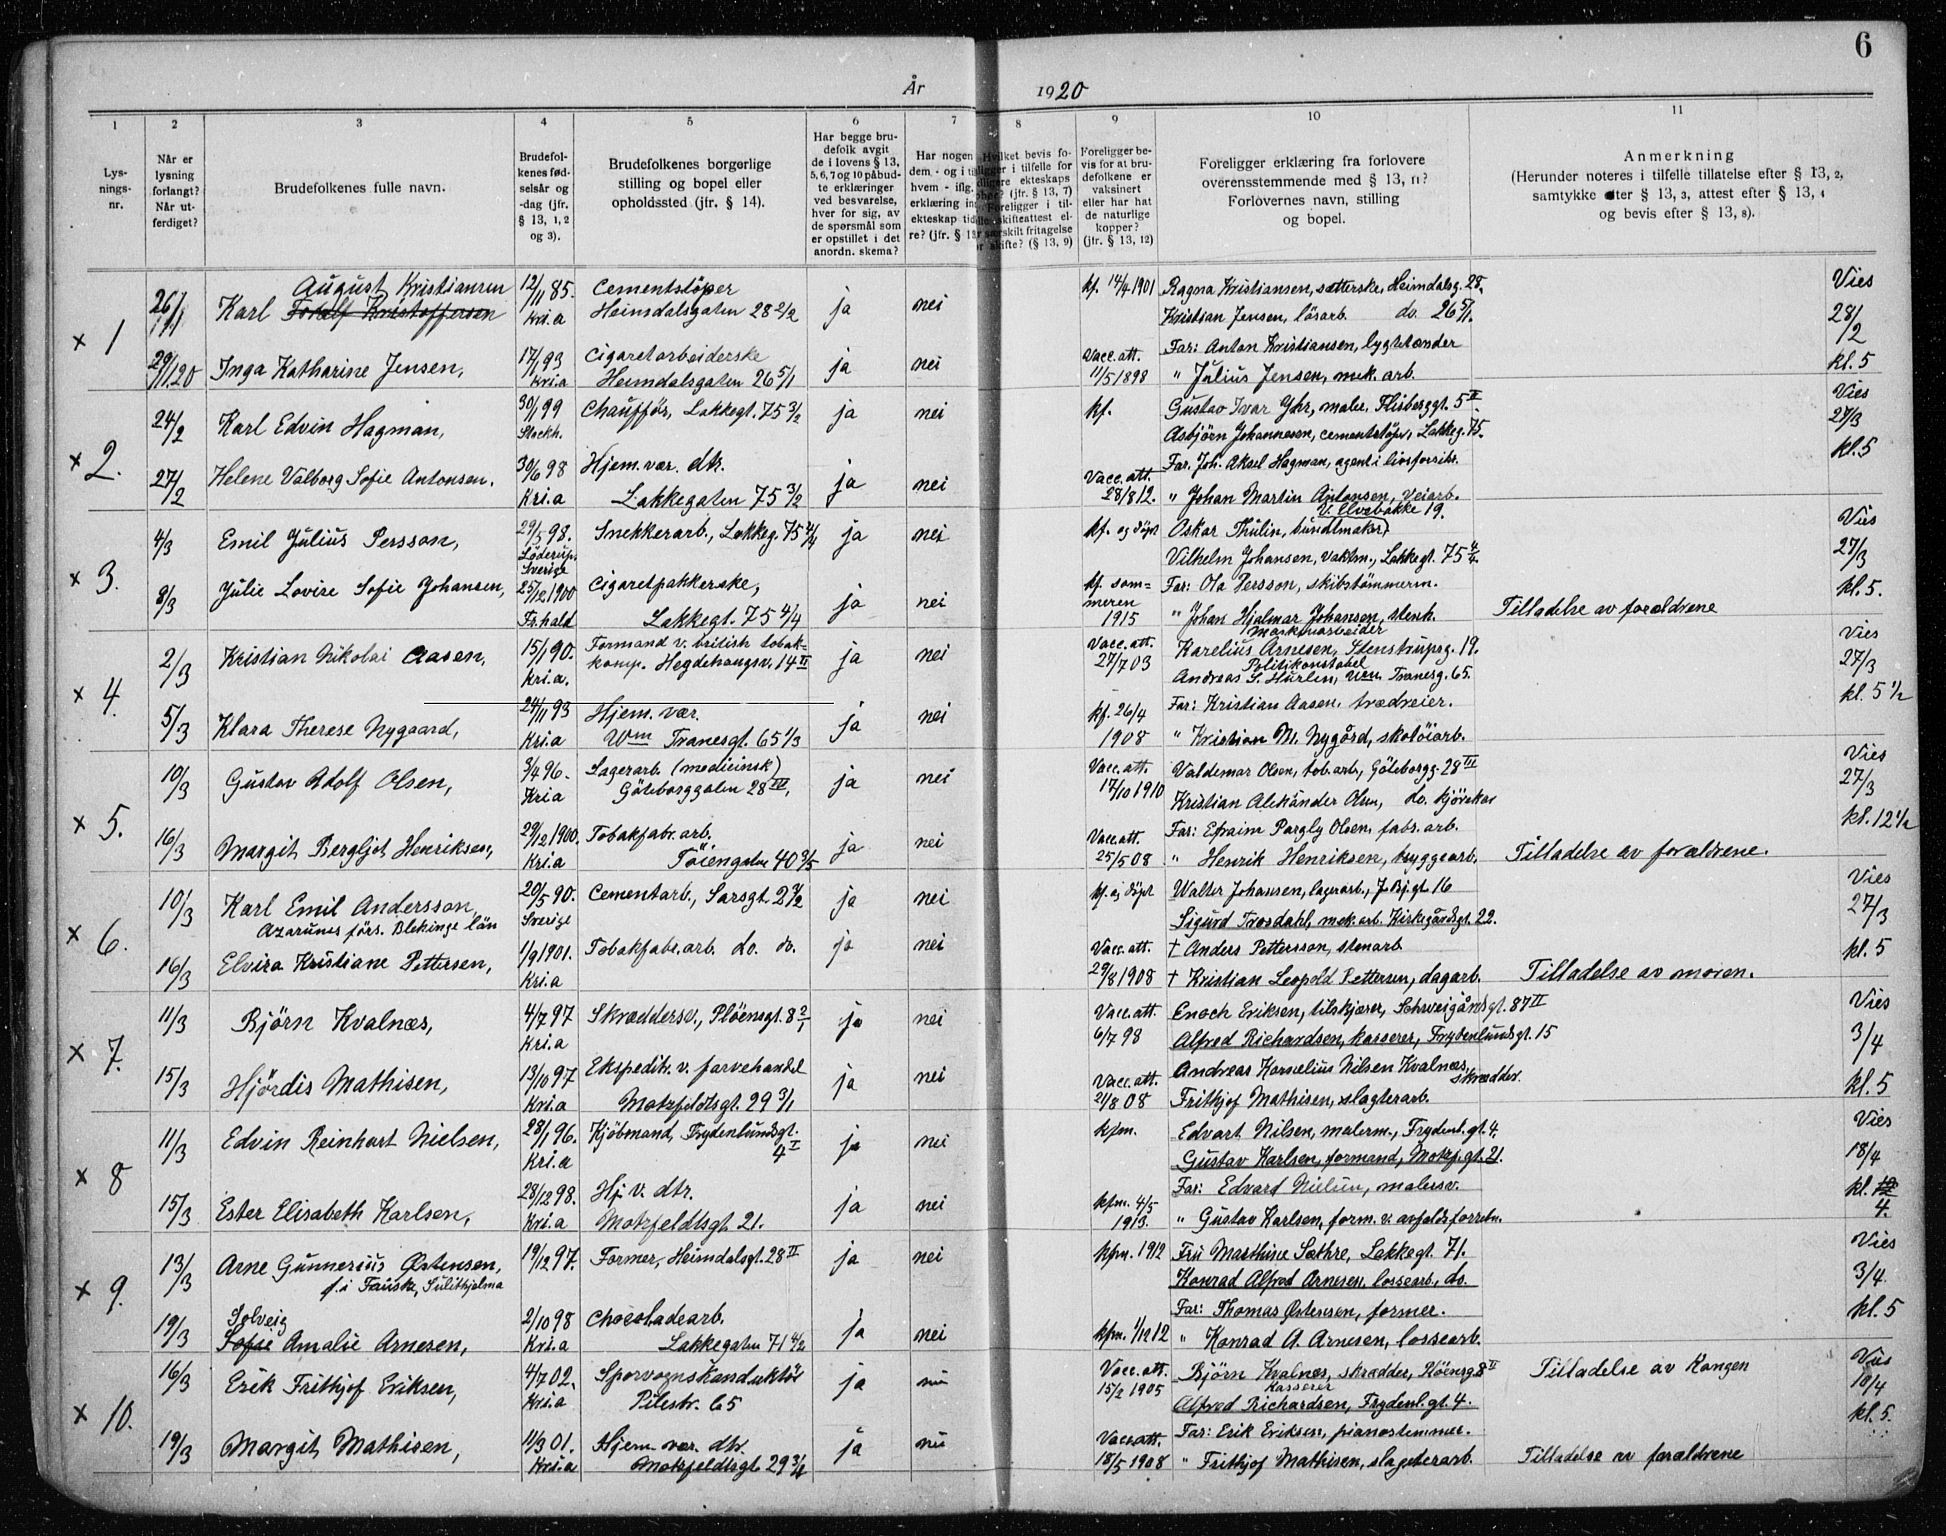 6
År 1920
1 2 3 4 5 6 7 8 9 10 11
Lys-
nings-
nr.
Når er
lysning
forlangt?
Når ut-
ferdiget?
Brudefolkenes fulle navn.
Brudefol-
kenes fød-
selsår og
-dag (jfr.
§ 13, 1, 2
og 3).
Brudefolkenes borgerlige
stilling og bopel eller
opholdssted (jfr. § 14).
Har begge bru-
defolk avgit
de i lovens § 13,
5, 6, 7 og 10 påbud-
te erklæringer
ved besvarelse,
hver for sig, av
de spørsmål som
er opstillet i det
anordn. skema?
Har nogen
dem, - og i
hvem - iflg.
erklæring in
ekteskap tid
re? (jfr. § 13
Hvilket bevis fo-
religger i tilfelle for
ekteskaps
(jfr. § 13, 7)
Foreligger i til-
skifteattest el-
særskilt fritagelse
skifte? (§ 13, 9)
Foreligger be-
vis for at bru-
defolkene er
vaksinert
eller har hat
de naturlige
kopper?
(jfr. § 13, 12)
Foreligger erklæring fra forlovere
overensstemmende med § 13, 11?
Forlovernes navn, stilling
og bopel.
Anmerkning
(Herunder noteres i tilfelle tillatelse efter § 13, 2,
samtykke efter § 13, 3, attest efter § 13, 4
og bevis efter § 13, 8).
x 1 26/1 Karl Toralf Kristoffersen August Kristiansen 12/11 85. Kri.a Cementstöper Heimdalsgaten 28 2/2 ja nei kf. 14/4 1901 Ragna Kristiansen, sætterske, Heimdalsg. 28. Vies
Kristian Jensen, lösarb. do. 26 5/1. 28/2
Far: Anton Kristiansen, lygtetænder
29/1 1920 Inga Katharine Jensen, 17/1 93 Kri.a Cigaretarbeiderske Heimdalsgaten 26 5/1 ja nei Vacc. att. 11/5 1898 " Julius Jensen, mek. arb. kl. 5
x 2. 24/2 Karl Edvin Hagman, 30/1 99 Stockh. Chaufför, Lakkegt. 75 3/2 ja nei kf. Gustav Ivar Yhr, maler, Flisberggt. 5 II. Vies
Asbjörn Johannesen, cementstöper, Lakkeg. 75. 27/3
Far. Joh. Aksel Hagman, agent i livsforsikr. kl. 5
27/2 Helene Valborg Sofie Antonsen. 30/6 98 Kri.a Hjem. vær. dtr. Lakkegaten 75 3/2 ja nei Vacc. att. 28/8 12. " Johan Martin Antonsen, veiarb.
V. Elvebakke 19.
x 3. 4/3 Emil Julius Persson, 29/5 98. Löderup, Sverige Snekkerarb., Lakkeg. 75 4/4 ja nei kf. og döpt Oskar Thulin, buntmaker, Vies
Vilhelm Johansen, vaktm., Lakkegt. 75 4/4. 27/3
8/3 Julie Lovise Sofie Johansen, 25/12 1900 Fr.hald Cigaretpakkerske, Lakkegt. 75 4/4 ja nei kf. som=meren 1915 Far: Ola Persson, skibstömmerm. kl. 5.
" Johan Hjalmar Johansen, stenh. Tilladelse av forældrene
x 4. 2/3 Kristian Nikolai Aasen, 15/1 90. Kri.a. Formand v. british tobak-komp. Hegdehaugsv. 14 II ja nei Vacc. att. 27/7 03 Maskinarbeider Karelius Arnesen, Stenstrupsg. 19. Vies
Politikonstabel Andreas S. Hurlen, Wm Tranesg. 65. 27/3
Far: Kristian Aasen, trædreier. kl. 5 1/2
5/3 Klara Therese Nygaard, 24/11 93 Kri.a Hjem. vær. Wm Tranesgt. 65 1/3 ja nei kf. 26/4 1908 " Kristian M. Nygård, skotöiarb.
x 5. 10/3 Gustav Adolf Olsen, 3/4 96. Kria Lagerarb. (medicinsk) Göteborggaten 28 III, ja nei Vacc. att. 17/10 1910 Valdemar Olsen, tob.arb., Göteborgg. 28 III Vies
Kristian Aleksander Olsen, do. 27/3
Far: Efraim Olsen, fabr. arb. kl. 12 1/2
16/3 Margit Bergljot Henriksen, 29/12 1900. Kri.a Tobakfabr. arb. Töiengaten 40 3/5 ja nei Vacc. att. 25/5 08 " Henrik Henriksen, bryggearb. Tilladelse av forældrene.
x 6. 10/3 Karl Emil Andersson, Azarums förs. Blekinge län 20/5 90. Sverige Cementarb., Sarsgt. 2 4/2 ja nei kf. og döpt Walter Johansen, lagerarb., J. Bj. gt. 16 Vies
Sigurd Trosdahl, mek. arb. Kirkegårdsgt. 22. 27/3
16/3 Elvira Kristiane Pettersen, 1/9 1901. Kri.a Tobakfabr. arb. do. do. ja nei Vacc. att. 29/8 1908 † Anders Pettersson, stenarb. kl. 5
† Kristian Leopold Pettersen, dagarb. Tilladelse av moren.
x 7. 11/3 Björn Kvalnæs, 4/7 97 Kri.a Skræddersv., Plöensgt. 8 2/1 ja nei Vacc. att. 6/7 98 Enoch Eriksen, tilskjærer, Schweigårdsgt. 87 II Vies
Alfred Richardsen, kasserer, Frydenlundsgt. 15 3/4
15/3 Hjördis Mathisen, 13/10 97 Kri.a Ekspeditr. v. farvehandel Motzfeldtsgt. 29 3/1 ja nei Vacc. att. 21/8 08 Andreas Kornelius Nilsen Kvalnæs, skrædder. kl. 5
Frithjof Mathisen, slagterarb.
x 8 11/3 Edvin Reinhart Nielsen, 28/1 96. Kri.a Kjöbmand, Frydenlundsgt. 4 I ja nei kfm. Edvart Nilsen, malerm., Frydenl.gt. 4. Vies
Gustav Karlsen, formand, Motzf.gt. 21. 18/4
15/3 Ester Elisabeth Karlsen, 28/12 98. Kri.a Hj. v. dtr. Motzfeldtsgt. 21. ja nei kfm. 4/5 1913. Far: Edvard Nielsen, malersv. kl. 4.
" Gustav Karlsen, form. v. avfaldsforretn.
x 9. 13/3 Arne Gunnerius Østensen, f. i Fauske, Sulithjelma 19/12 97. Former, Heimdalsgt. 28 II ja nei kfm. 1912 Fru Marthine Sæthre, Lakkegt. 71. Vies
Konrad Alfred Arnesen, lossearb., do. 3/4
Far: Thomas Østensen, former. kl. 5
19/3 Sofie Solveig Amalie Arnesen, 2/10 98 Kri.a Chocoladearb. Lakkegaten 71 4/2 ja nei kfm. 1/12 12 " Konrad A. Arnesen, lossearb.
x 10. 16/3 Erik Frithjof Eriksen, 4/7 02. Kri.a Sporvognskonduktör Pilestr. 65 ja nei Vacc. att. 15/2 1905 Björn Kvalnæs, skrædder, Plöensg. 8 II Tilladelse av Kongen Vies
kasserer Alfred Richardsen, Frydenl.gt. 4. 10/4
Far: Erik Eriksen, pianostemmer. kl. 5.
19/3 Margit Mathisen, 11/3 01. Kri.a Hjem. vær. dtr. Motzfeldtsgt. 29 3/4 ja nei Vacc. att. 18/5 1908 " Frithjof Mathisen, slagterarb. Tilladelse av forældrene